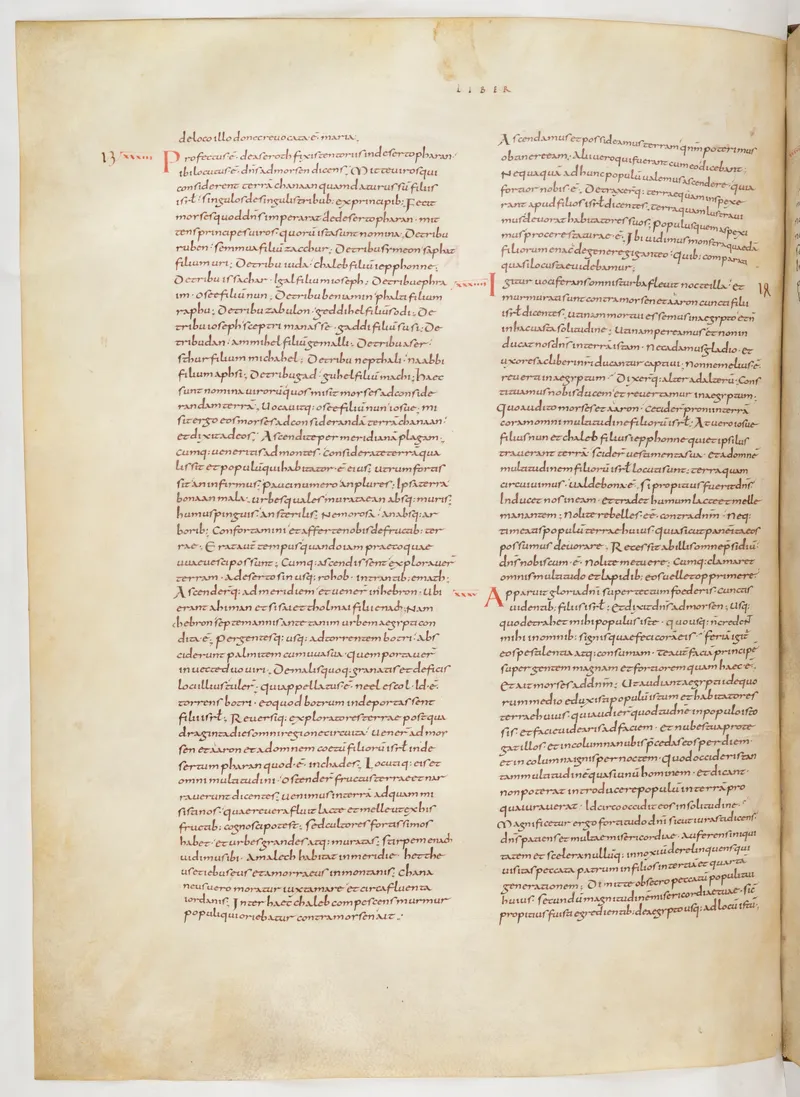 LIBER
de loco illo donec reuocata ē maria.
13
Profectus ē de aseroth fixis tentoriis in deserto pharan
ibi locutus ē dn̄s ad moysen dicens; Mitte uiros qui
considerent terrā chanaan quam daturus sū filiis
isrł singulos de singulis tribub; ex principib; Fecit
moyses quod dn̄s imperarat de deserto pharan mit
tens principes uiros quorū ista sunt nomina, De tribu
ruben semmua filiū zacchur; De tribu symeon saphat
filium huri; De tribu iuda chaleb filiū iepphonne;
De tribu isachar igal filium ioseph; De tribu ephra
im osee filiū nun, De tribu beniamin phalti filium
raphu; De tribu zabulon geddihel filiū sodi; De
tribu ioseph sceptri manasse gaddi filiū susi; De
tribu dan ammihel filiū gemalli; De tribu aser
sthur filium michahel; De tribu nepthali naabbi
filium aphsi; De tribu gad guhel filiū machi; Haec
sunt nomina uirorū quos misit moyses ad conside
randam terrā, Uocauitq; osee filiū nun iosue; mi
sit ergo eos moyses ad considerandā terrā chanaan
et dixit ad eos; Ascendite per meridianā plagam,
cumq; ueneritis ad montes considerate terrā qua
lis sit et populū qui habitator ē eius; utrum fortis
sit an infirmus; pauci numero an plures; Ipsa terra
bona an mala, urbes quales muratae an absq; muris;
humus pinguis an sterilis; Nemorosa an absq; ar
borib; Confortamini et afferte nobis de fructib; ter
rae; Erat aut̄ tempus quando iam praecoquae
uuae uesci possunt; Cumq; ascendissent explorauer̄
terram a deserto sin usq; rohob intrantib; emath;
Ascender̄q; ad meridiem et uener̄ in hebron ubi
erant ahiman et sisai et tholmai filii enach; Nam
hebron septem annis ante tanim urbem aegypti con
dita ē; Pergentesq; usq; ad torrentem botri abs
ciderunt palmitem cum uua sua quem portauer̄
in uecte duo uiri, De malis quoq; granatis et de ficis
loci illius tuler̄; qui appellatus ē neelescol id ē
torrens botri eo quod botrum inde portassent
filii isrł; Reuersiq; exploratores terrae post qua
draginta dies omni regione circuita uener̄ ad moy
sen et aaron et ad omnem coetū filiorū isrł in de
sertum pharan quod ē in cades; Locutiq; eis et
omni multitudini ostender̄ fructus terrae et nar
rauerunt dicentes; uenimus in terrā ad quam mi
sisti nos quae reuera fluit lacte et melle ut ex his
fructib; cognosci potest; sed cultores fortissimos
habet et urbes grandes atq; muratas; stirpem enach
uidimus ibi Amalech habitat in meridie hettheus
et iebuseus et amorraeus in montanis; Chana
neus uero moratur iuxta mare et circa fluenta
iordanis; Inter haec chaleb compescens murmur
populi qui oriebatur contra moysen ait.;
Ascendamus et possideamus terram qm̄ poterimus
obtinere eam; Alii uero qui fuerant cum eo dicebant;
Nequaquā ad hunc populū ualemus ascendere quia
fortior nobis ē, Detraxer̄q; terrae quam inspexe
rant apud filios isrł dicentes, terra quam lustrauimus
deuorat habitatores suos; populus quem aspexi
mus procerae staturae ē; Ibi uidimus monstra quaedā
filiorum enac de genere giganteo quib; comparati
quasi locustae uidebamur;
18
Igitur uociferans omnis turba fleuit nocte illa et
murmurati sunt contra moysen et aaron cuncti filii
isrł dicentes, utinam mortui essemus in aegypto et n̄
in hac uasta solitudine; Utinam pereamus et non in
ducat nos dn̄s in terrā istam Ne cadamus gladio et
uxores ac liberi nr̄i ducantur captiui; nonne melius ē
reuerti in aegyptum Dixer̄q; alter ad alterū; Cons
tituamus nobis ducem et reuertamur in aegyptum;
Quo audito moyses et aaron Cecider̄ proni in terrā
coram omni multitudine filiorū isrł; At uero iosue
filius nun et chaleb filius iepphonne qui et ipsi lus
trauerant terrā scider̄ uestimenta sua et ad omnē
multitudinem filiorū isrł locuti sunt; terra quam
circuiuimus ualde bona ē, si propitius fuerit dn̄s
Inducet nos in eam et tradet humum lacte et melle
manantem; Nolite rebelles ēē contra dnm̄ Neq;
timeatis populū terrae huius quia sicut panē ita eos
possumus deuorare, Recessit ab illis omne p̄sidiū
dn̄s nobiscum ē nolite metuere; Cumq; clamaret
omnis multitudo et lapidib; eos uellet opprimere;
Apparuit gloria dn̄i super tectum foederis cunctis
uidentib; filiis isrł; et dixit dn̄s ad moysen; Usq;
quo detrahet mihi populus iste quousq; n̄ credent
mihi in omnib; signis quae feci corā eis feriā igit̄
eos pestilentia atq; consumam te aut̄ faciā principē
super gentem magnam et fortiorem quam haec ē,
Et ait moyses ad dnm̄; Ut audiant aegyptii de quo
rum medio eduxisti populū istum et habitatores
terrae huius qui audier̄ quod tu dn̄e in populo isto
sis et facie uidearis ad faciem et nubes tua prote
gat illos et in columna nubis p̄cedas eos per diem
et in columna ignis per noctem quod occideris tan
tam multitudinē quasi unū hominem et dicant
non poterat introducere populū in terrā pro
qua iurauerat Idcirco occidit eos in solitudine
Magnificetur ergo fortitudo dn̄i sicut iurasti dicens
dn̄s patiens et multae misericordiae Auferens iniqui
tatem et scelera nullūq; innoxiū derelinquens qui
uisitas peccata patrum in filios in tertiā et quartā
generationem; Dimitte obsecro peccatū populi tui
huius secundū magnitudinē misericordiae tuae sic̄
propitius fuisti egredientib; de aegypto usq; ad locū istū;